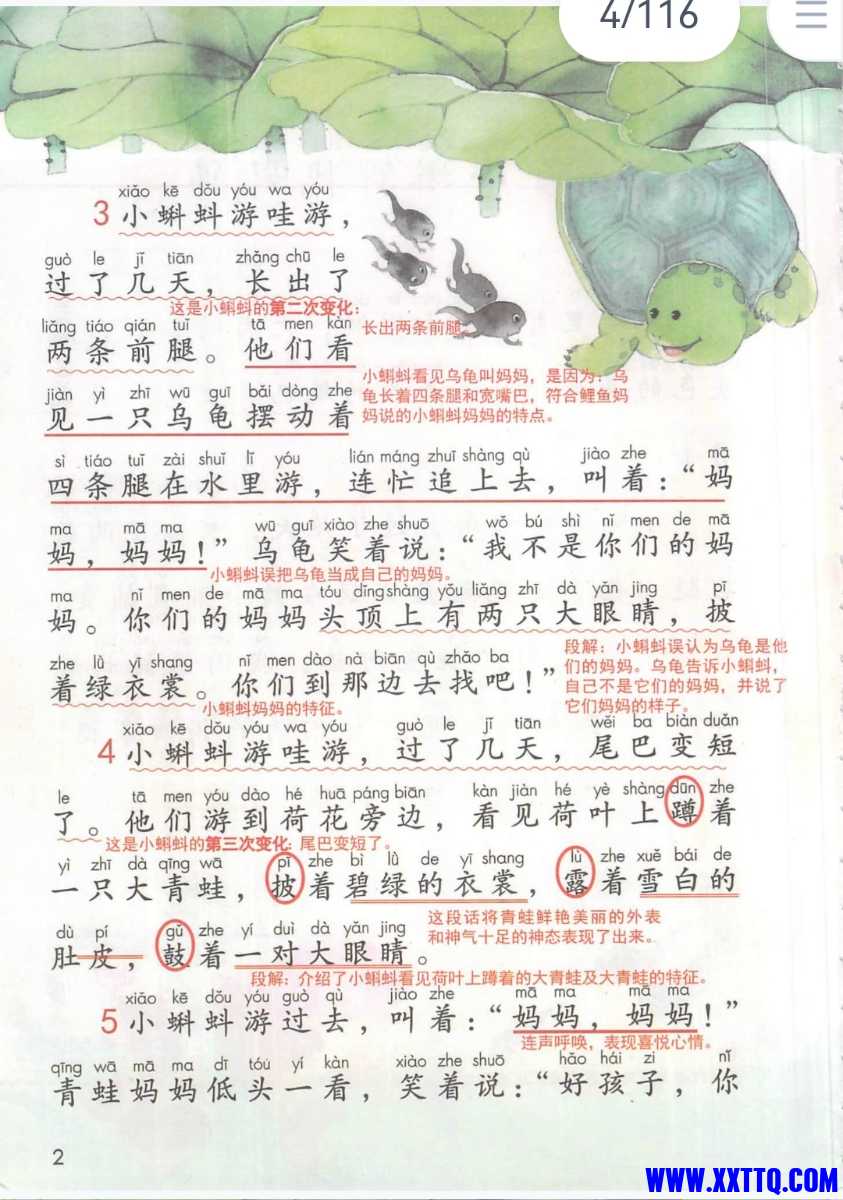 4/116
xiǎo kē dǒu yóu wa yóu
3 小蝌蚪游哇游，
guò le jǐ tiān zhǎng chū le
过了几天，长出了
这是小蝌蚪的第二次变化：
长出两条前腿。
liǎng tiáo qián tuǐ tā men kàn
两条前腿。他们看
小蝌蚪看见乌龟叫妈妈，是因为：乌
龟长着四条腿和宽嘴巴，符合鲤鱼妈
妈说的小蝌蚪妈妈的特点。
jiàn yì zhī wū guī bǎi dòng zhe
见一只乌龟摆动着
sì tiáo tuǐ zài shuǐ lǐ yóu lián máng zhuī shàng qù jiào zhe mā
四条腿在水里游，连忙追上去，叫着：“妈
ma mā ma wū guī xiào zhe shuō wǒ bú shì nǐ men de mā
妈，妈妈！”乌龟笑着说：“我不是你们的妈
小蝌蚪误把乌龟当成自己的妈妈。
ma nǐ men de mā ma tóu dǐng shàng yǒu liǎng zhī dà yǎn jing pī
妈。你们的妈妈头顶上有两只大眼睛，披
zhe lǜ yī shang nǐ men dào nà biān qù zhǎo ba
着绿衣裳。你们到那边去找吧！”
小蝌蚪妈妈的特征。
段解：小蝌蚪误认为乌龟是他
们的妈妈。乌龟告诉小蝌蚪，
自己不是它们的妈妈，并说了
它们妈妈的样子。
xiǎo kē dǒu yóu wa yóu guò le jǐ tiān wěi ba biàn duǎn
4 小蝌蚪游哇游，过了几天，尾巴变短
le tā men yóu dào hé huā páng biān kàn jiàn hé yè shàng dūn zhe
了。他们游到荷花旁边，看见荷叶上蹲着
这是小蝌蚪的第三次变化：尾巴变短了。
yì zhī dà qīng wā pī zhe bì lǜ de yī shang lù zhe xuě bái de
一只大青蛙，披着碧绿的衣裳，露着雪白的
dù pí gǔ zhe yí duì dà yǎn jing
肚皮，鼓着一对大眼睛。
这段话将青蛙鲜艳美丽的外表
和神气十足的神态表现了出来。
段解：介绍了小蝌蚪看见荷叶上蹲着的大青蛙及大青蛙的特征。
xiǎo kē dǒu yóu guò qù jiào zhe mā ma mā ma
5 小蝌蚪游过去，叫着：“妈妈，妈妈！”
连声呼唤，表现喜悦心情。
qīng wā mā ma dī tóu yí kàn xiào zhe shuō hǎo hái zi nǐ
青蛙妈妈低头一看，笑着说：“好孩子，你
2
WWW.XXTTQ.COM